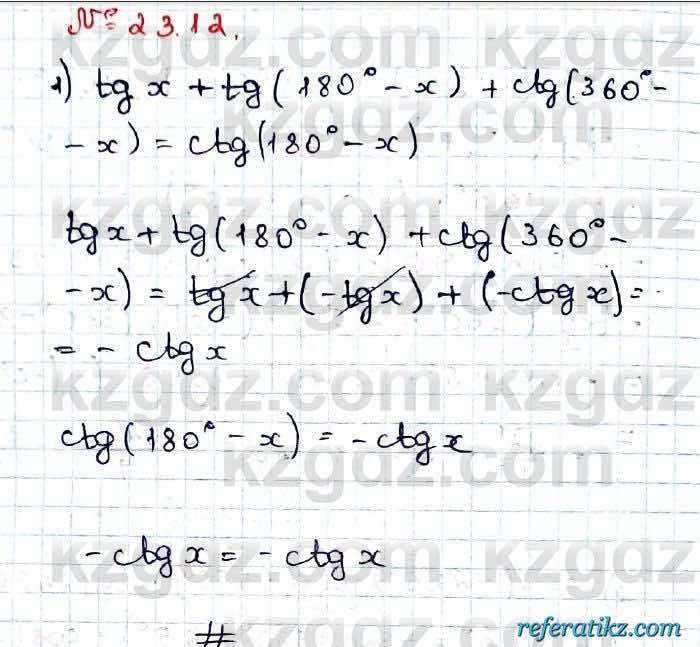 № 23.12.
1) tg x + tg(180° - x) + ctg(360° -
- x) = ctg(180° - x)
tg x + tg(180° - x) + ctg(360° -
- x) = tg x + (-tg x) + (-ctg x) =
= - ctg x
ctg(180° - x) = - ctg x
- ctg x = - ctg x
#
kzgdz.com
kzgdz.com
kzgdz.com
kzgdz.com
kzgdz.com
kzgdz.com
kzgdz.com
referatikz.com